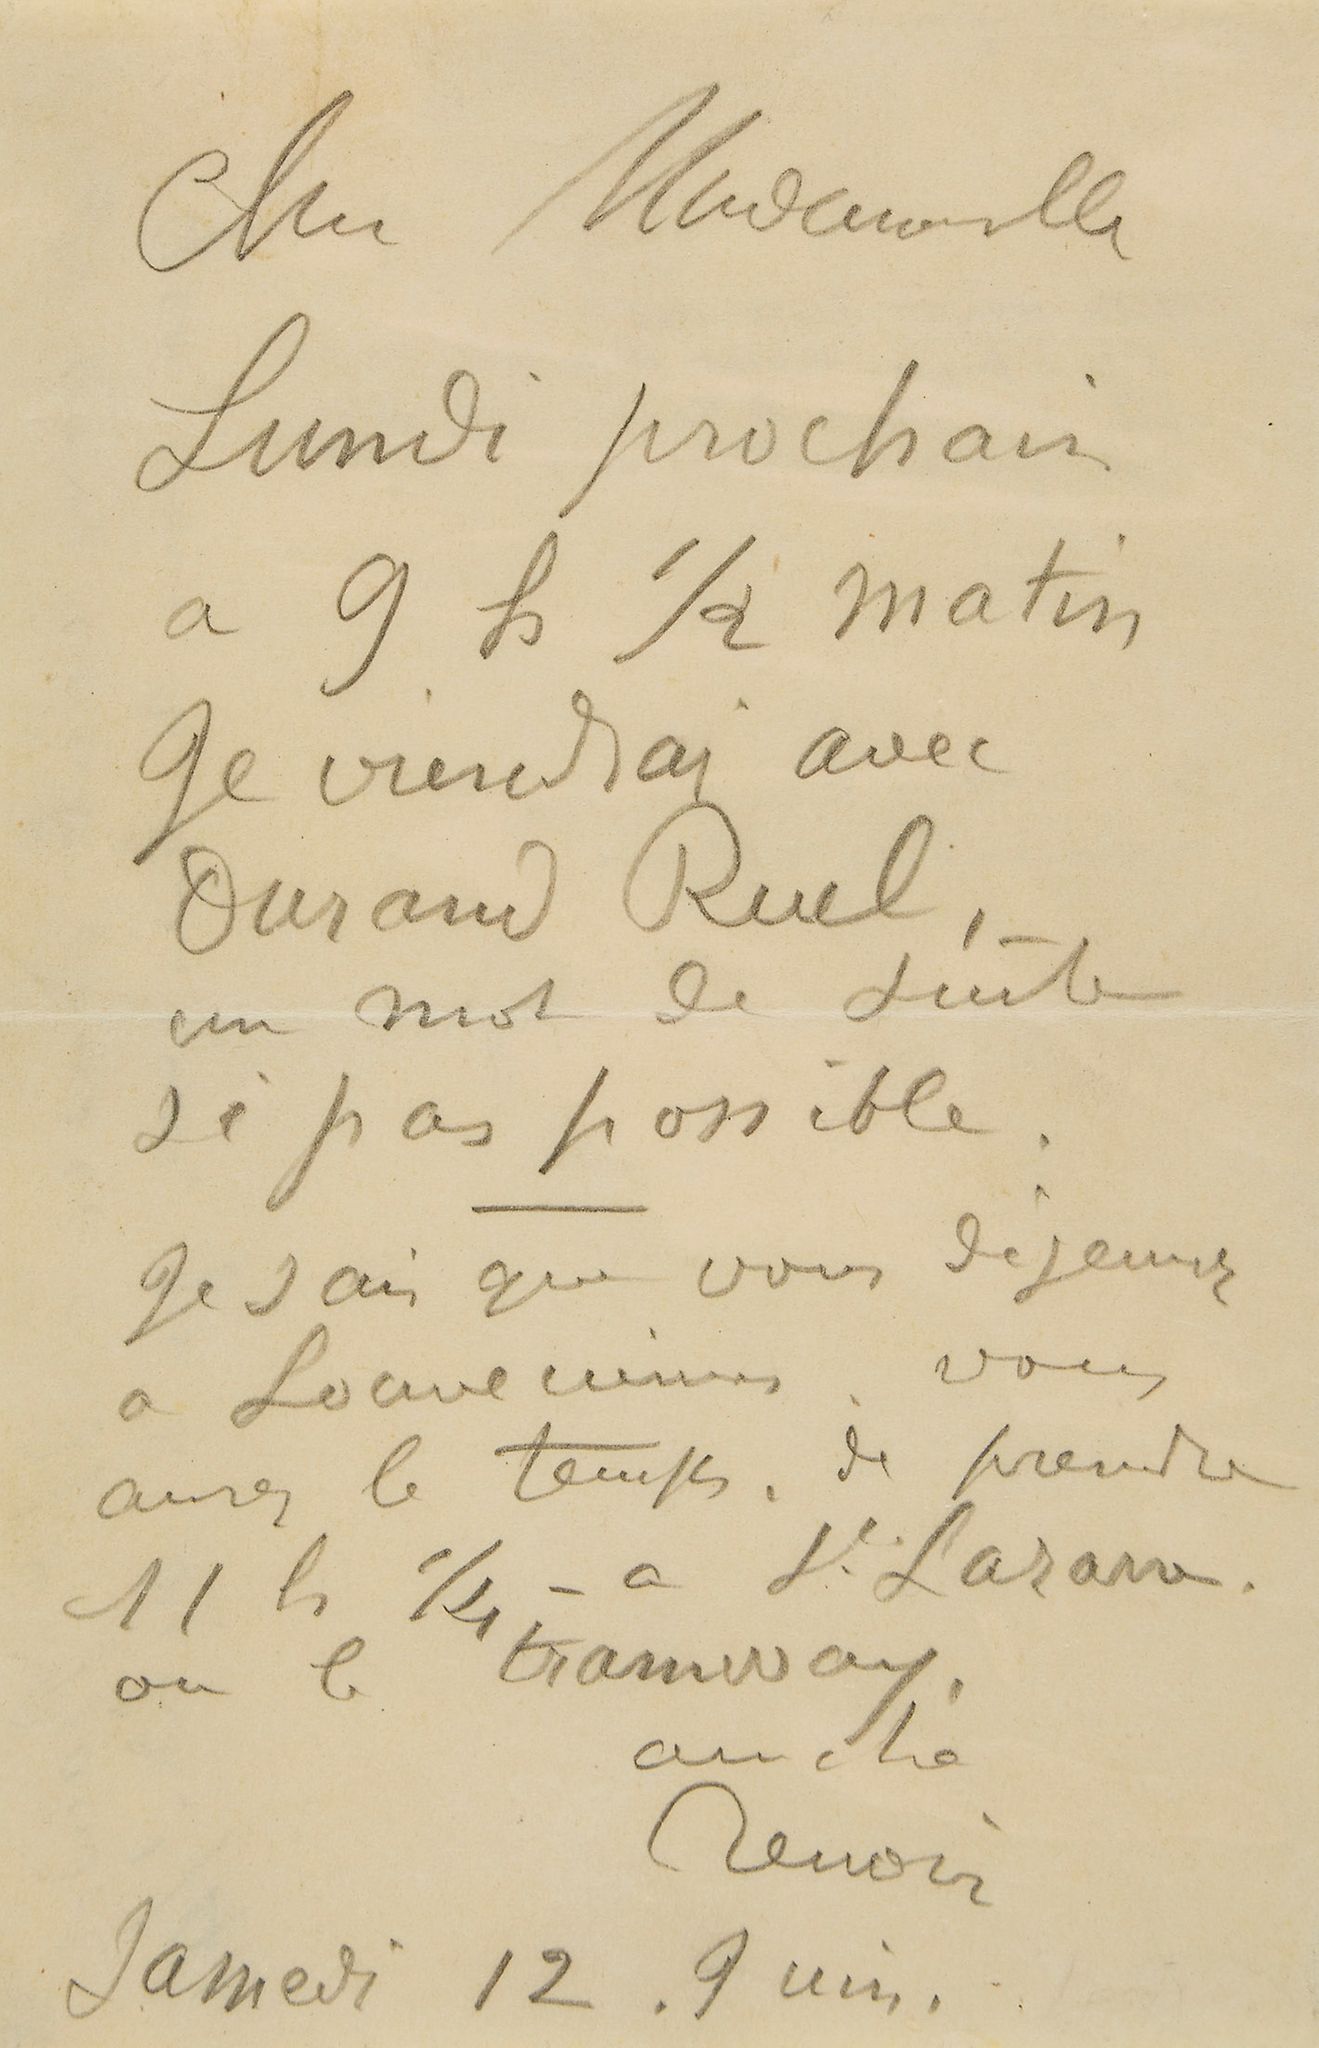 Cher Mademoiselle
Lundi prochain
a 9 h 1/2 matin
Je viendrai avec
Durand Ruel,
un mot de suite
si pas possible.
Je sais que vous déjeunez
a Louveciennes. vous
aurez le temps. de prendre
11 h 1/4 - a St. Lazare.
ou le tramway.
amitié
Renoir
Samedi 12. Juin.